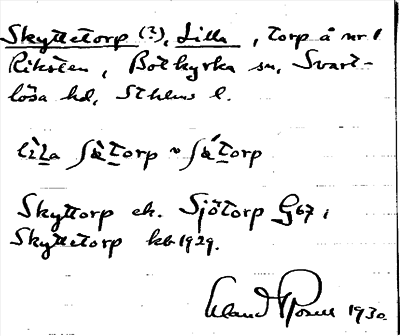 Skyttetorp (?), Lilla, torp å nr 1
Riksten, Botkyrka sn, Svart-
lösa hd, Sthlms l.
lìla torp ~ torp
Skyttorp ek. Sjötorp G67;
Skyttetorp kb 1929.
1930